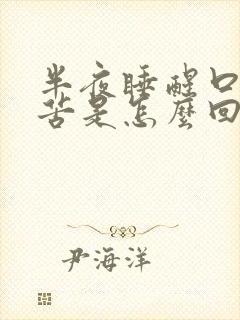 半夜睡醒口
苦是怎麼回
尹海洋